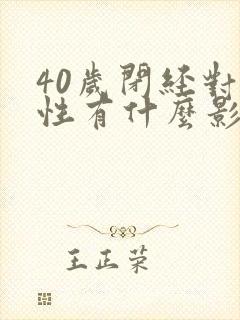 40歲閉經對
性有什麼影
王正荣